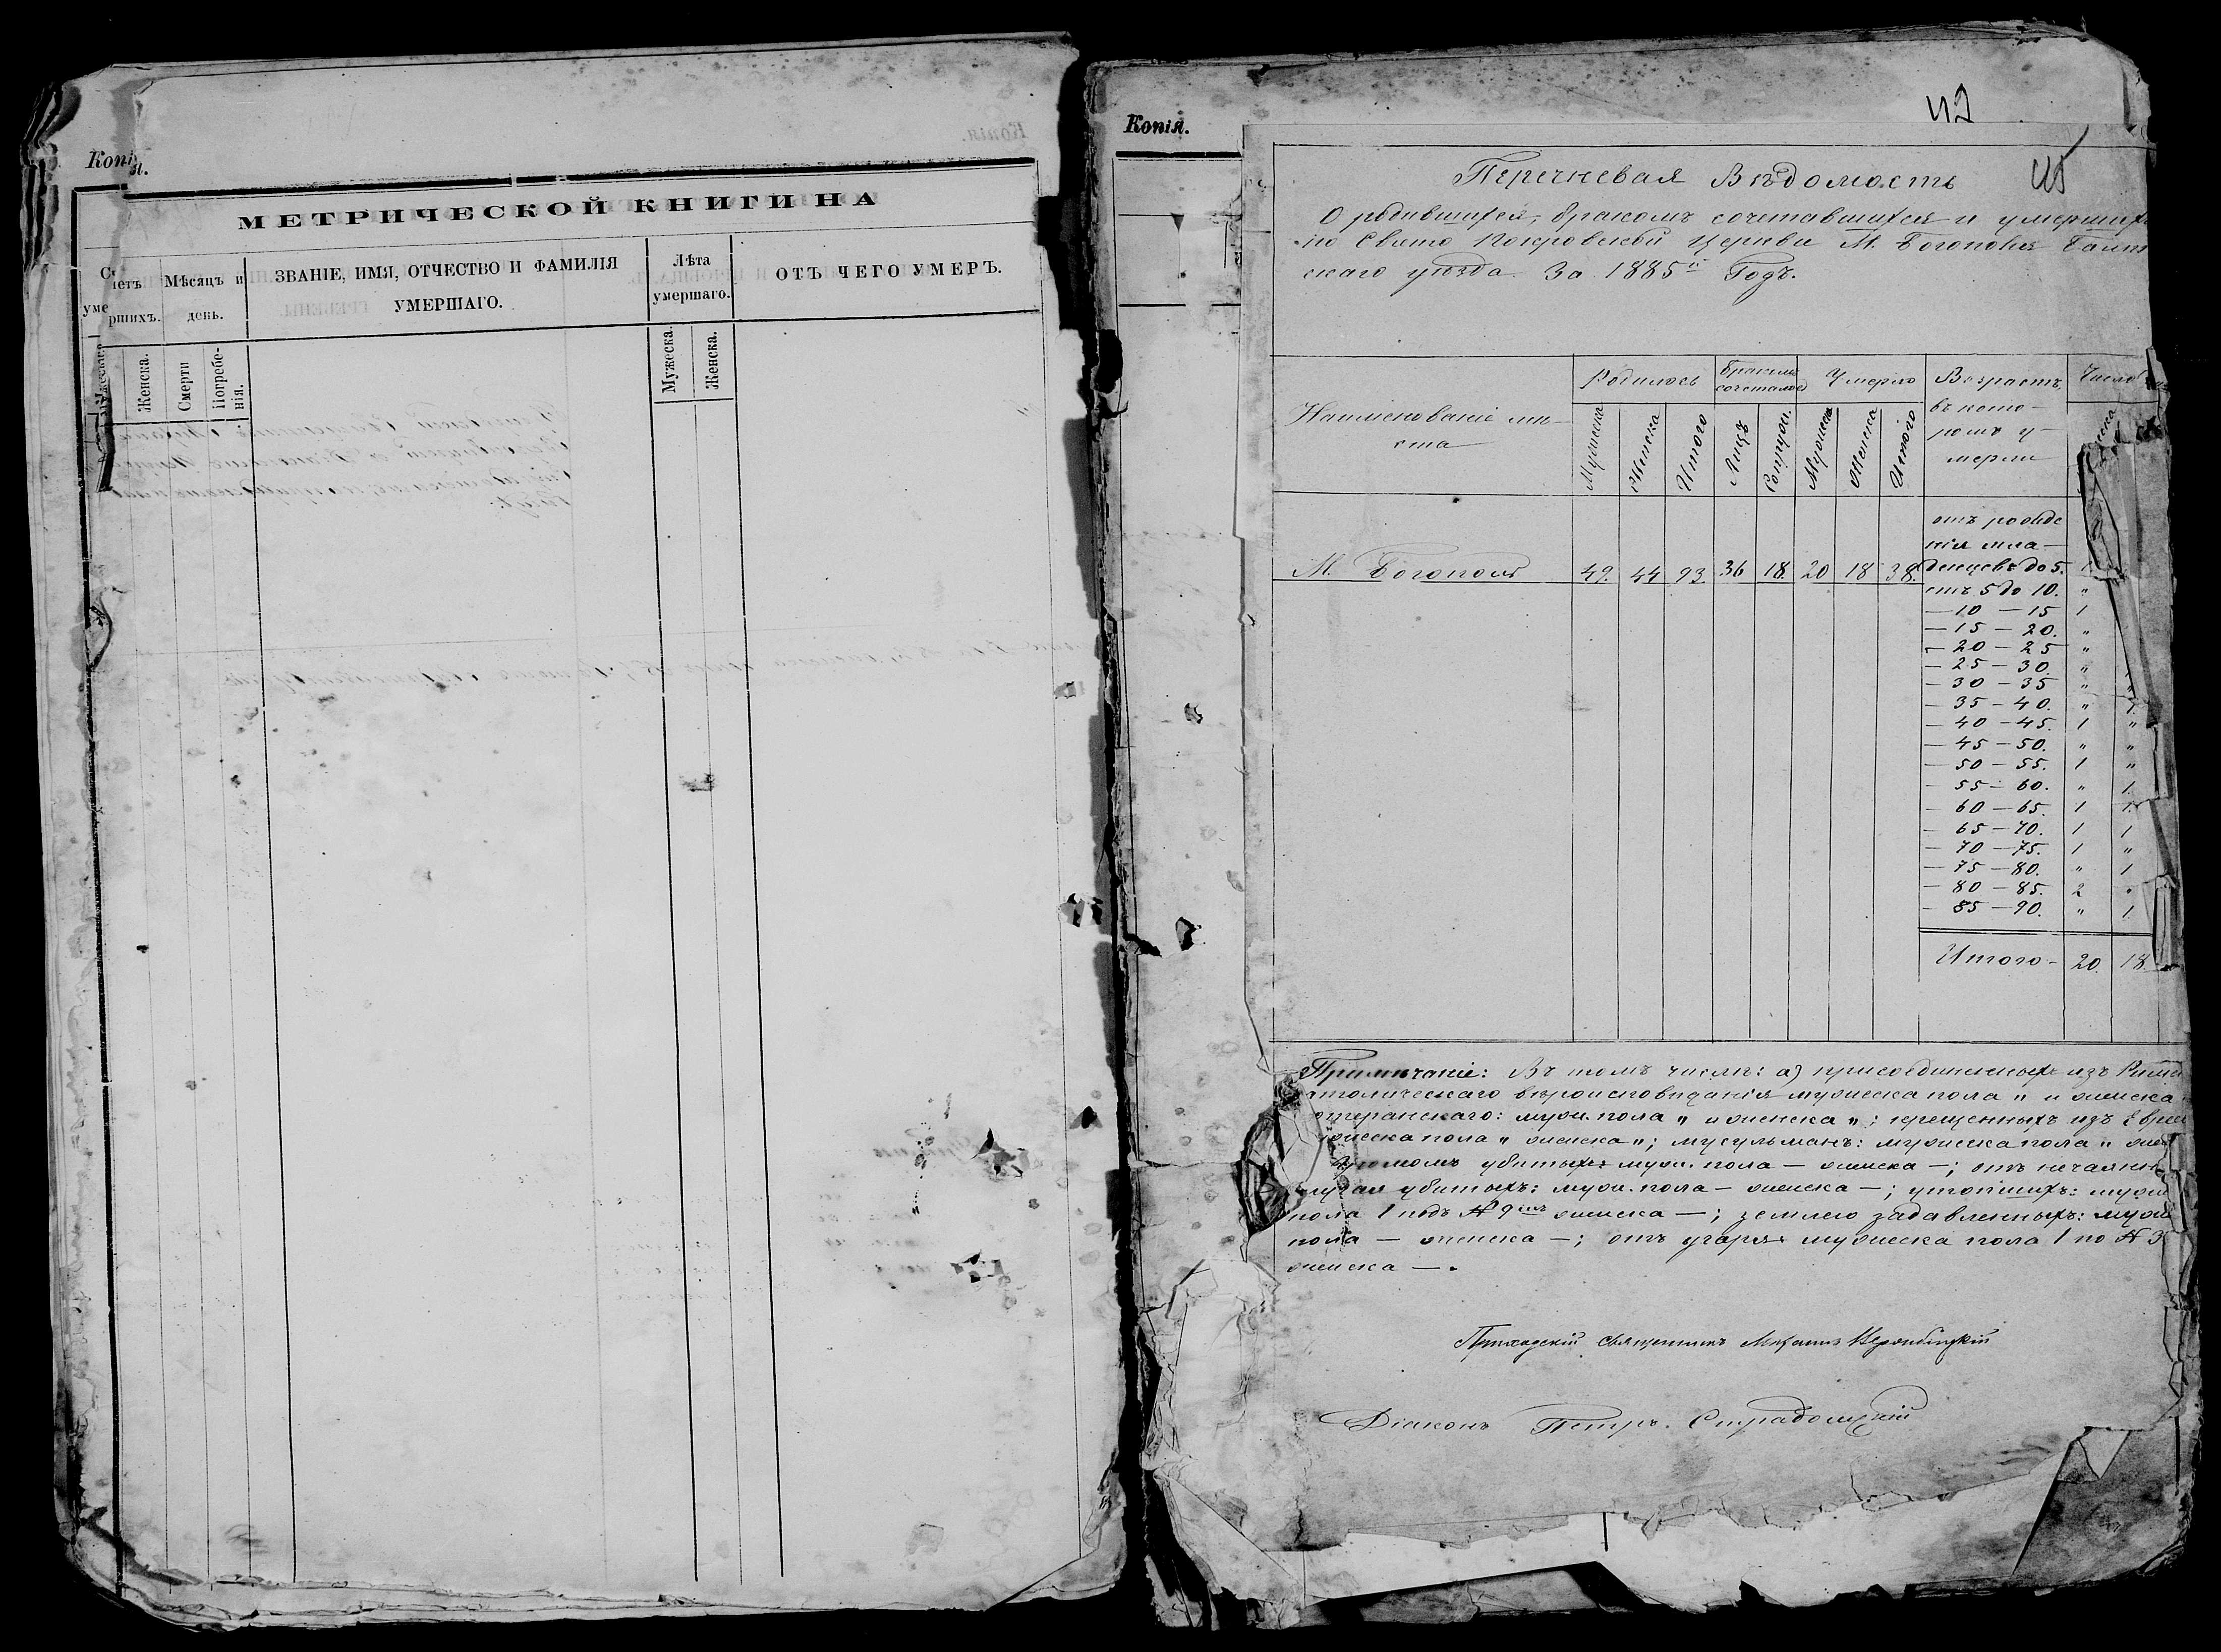 Копія.
МЕТРИЧЕСКОЙ КНИГИ НА
Счетъ умершихъ.
Мѣсяцъ и день.
ЗВАНІЕ, ИМЯ, ОТЧЕСТВО И ФАМИЛІЯ
УМЕРШАГО.
Лѣта
умершаго.
ОТЪ ЧЕГО УМЕРЪ.
Мужеска.
Женска.
Смерти
Погребе-
нія.
Мужеска.
Женска.
Копія.
42
45
Перечневая Вѣдомость
О родившихся, бракомъ сочетавшихся и умершихъ
по Свято Покровской Церкви М. Богополя Балт
скаго уѣзда. За 1885й Годъ.
Наименованіе мѣ-
ста
Родилось
Бракомъ
сочеталось
Умерло
Возрастъ
въ кото-
ромъ у-
мерли
Число
Мужеска
Женска
Итого
Лицъ
Супруж.
Мужеска
Женска
Итого
М. Богополь 49. 44 93. 36 18. 20 18 38.
отъ рожде
нія мла-
денцевъ до 5.
отъ 5 до 10. "
— 10 — 15 1
— 15 — 20. "
— 20 — 25 "
— 25 — 30. "
— 30 — 35 " "
— 35 — 40. " 1.
— 40 — 45. 1 "
— 45 — 50. " "
— 50 — 55. 1 "
— 55 — 60. " 1.
— 60 — 65. 1 1.
— 65 — 70. 1 1
— 70 — 75. 1 "
— 75 — 80. " 1
— 80 — 85. 2 "
— 85 — 90. " 1.
Итого — 20. 18.
Примѣчаніе: Въ томъ числѣ: а) присоединенныхъ изъ Римо
атолическаго вѣроисповѣданія мужеска пола " и женска
отеранскаго: муж. пола " и женска "; крещенныхъ изъ Евре
жеска пола " женска "; мусульманъ: мужеска пола " жен
громомъ убитыхъ муж. пола — женска —; отъ нечаян
случая убитыхъ: муж. пола — женска —; утопшихъ: муж
пола 1 подъ № 9мъ женска —; землею задавленныхъ: муж
пола — женска —; отъ угара: мужеска пола 1 по № 3
женска —.
Приходскій священникъ Михаилъ
Діаконъ Петръ Страдомскій